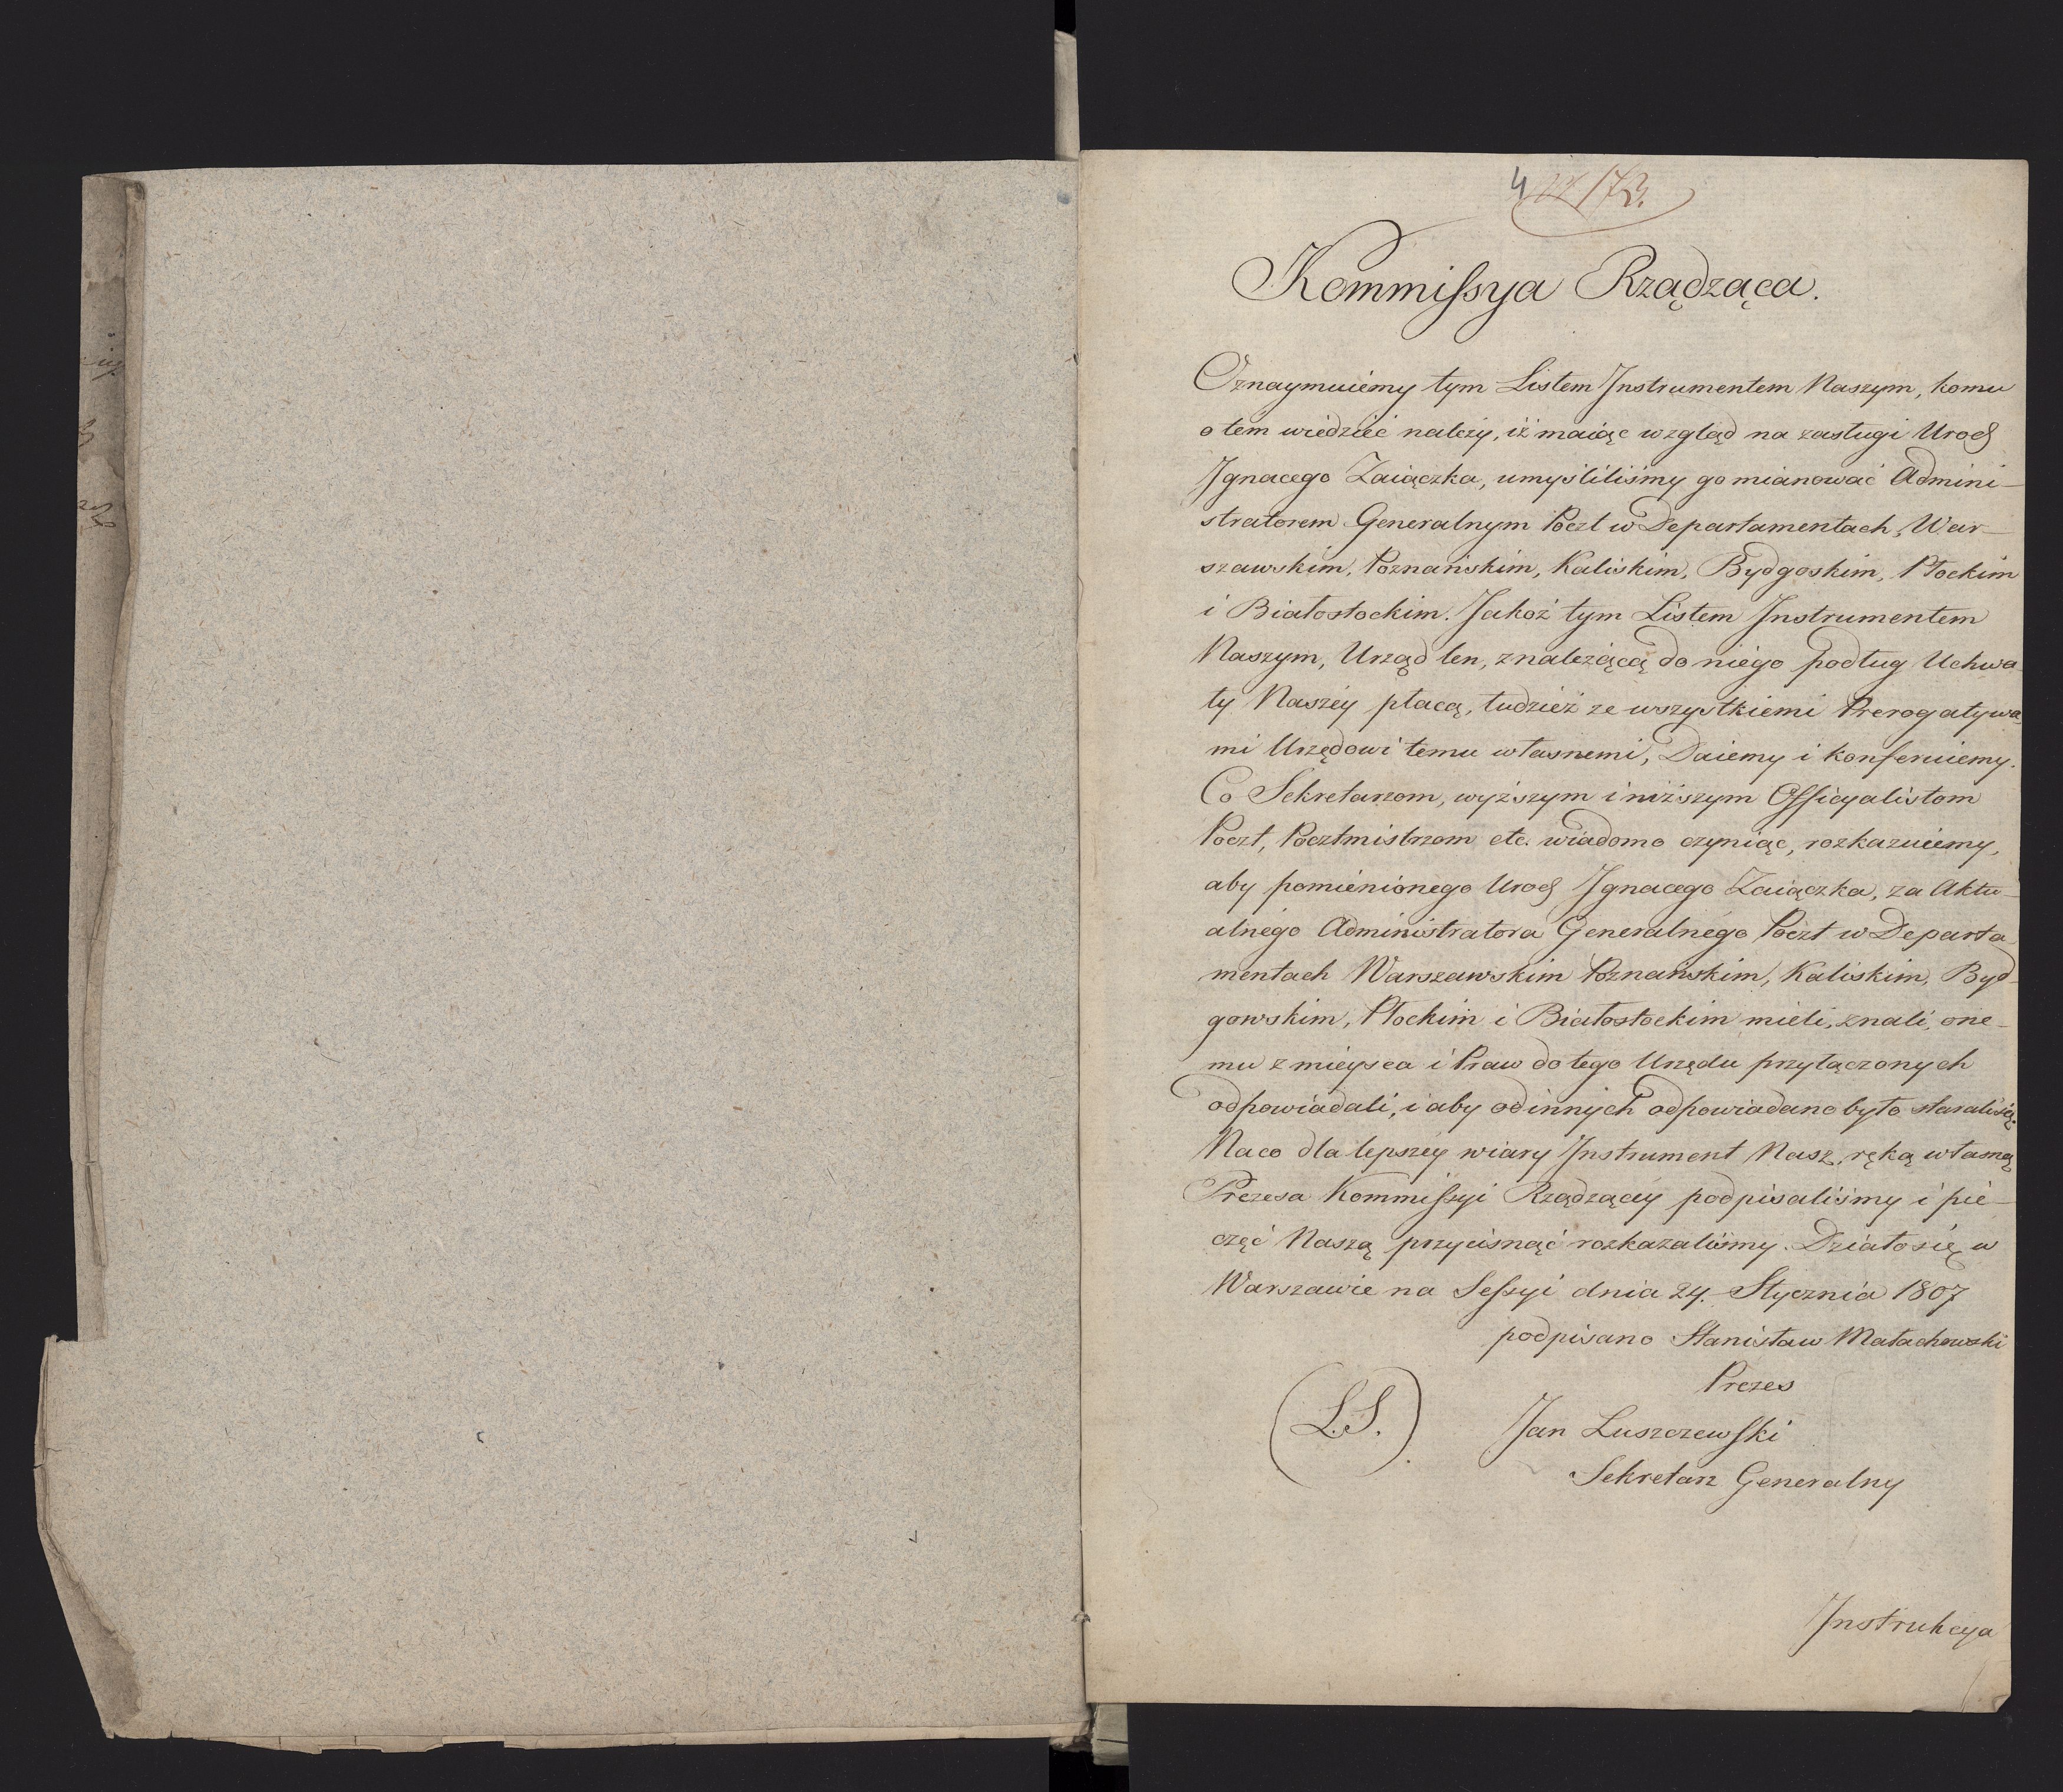 4
Kommissya Rządząca.
Oznaymuiemy tym Listem Instrumentem Naszym, komu
o tem wiedzieć należy, iż maiąc wzgląd na zasługi Urod
Ignacego Zaiączka, umyśliliśmy go mianować Admini-
stratorem Generalnym Poczt w Departamentach, War-
szawskim, Poznańskim, Kaliskim, Bydgoskim, Płockim
i Białostockim. Jakoż tym Listem Instrumentem
Naszym, Urząd ten, z należącą do niego podług Uchwa-
ły Naszéy płacą, tudzież ze wszystkiemi Prerogatywa-
mi Urzędowi temu własnemi, Daiemy i konferuiemy.
Co Sekretarzom, wyższym i niższym Officyalistom
Poczt, Pocztmistrzom etc. wiadomo czyniąc, rozkazuiemy,
aby pomienionego Urod Ignacego Zaiączka, za Aktu-
alnego Administratora Generalnego Poczt w Departa-
mentach Warszawskim Poznańskim, Kaliskim, Byd-
gowskim, Płockim i Białostockim mieli, znali, one-
mu z mieysca i Praw do tego Urzędu przyłączonych
odpowiadali, i aby od innych odpowiadano było starali się.
Na co dla lepszéy wiary Instrument Nasz, ręką własną
Prezesa Kommissyi Rządzącéy podpisaliśmy i pie-
częć Naszą przycisnąć rozkazaliśmy. Działo się w
Warszawie na Sessyi dnia 24. Stycznia 1807
podpisano Stanisław Małachowski
Prezes
(L.S.) Jan Luszczewski
Sekretarz Generalny
Instrukcya